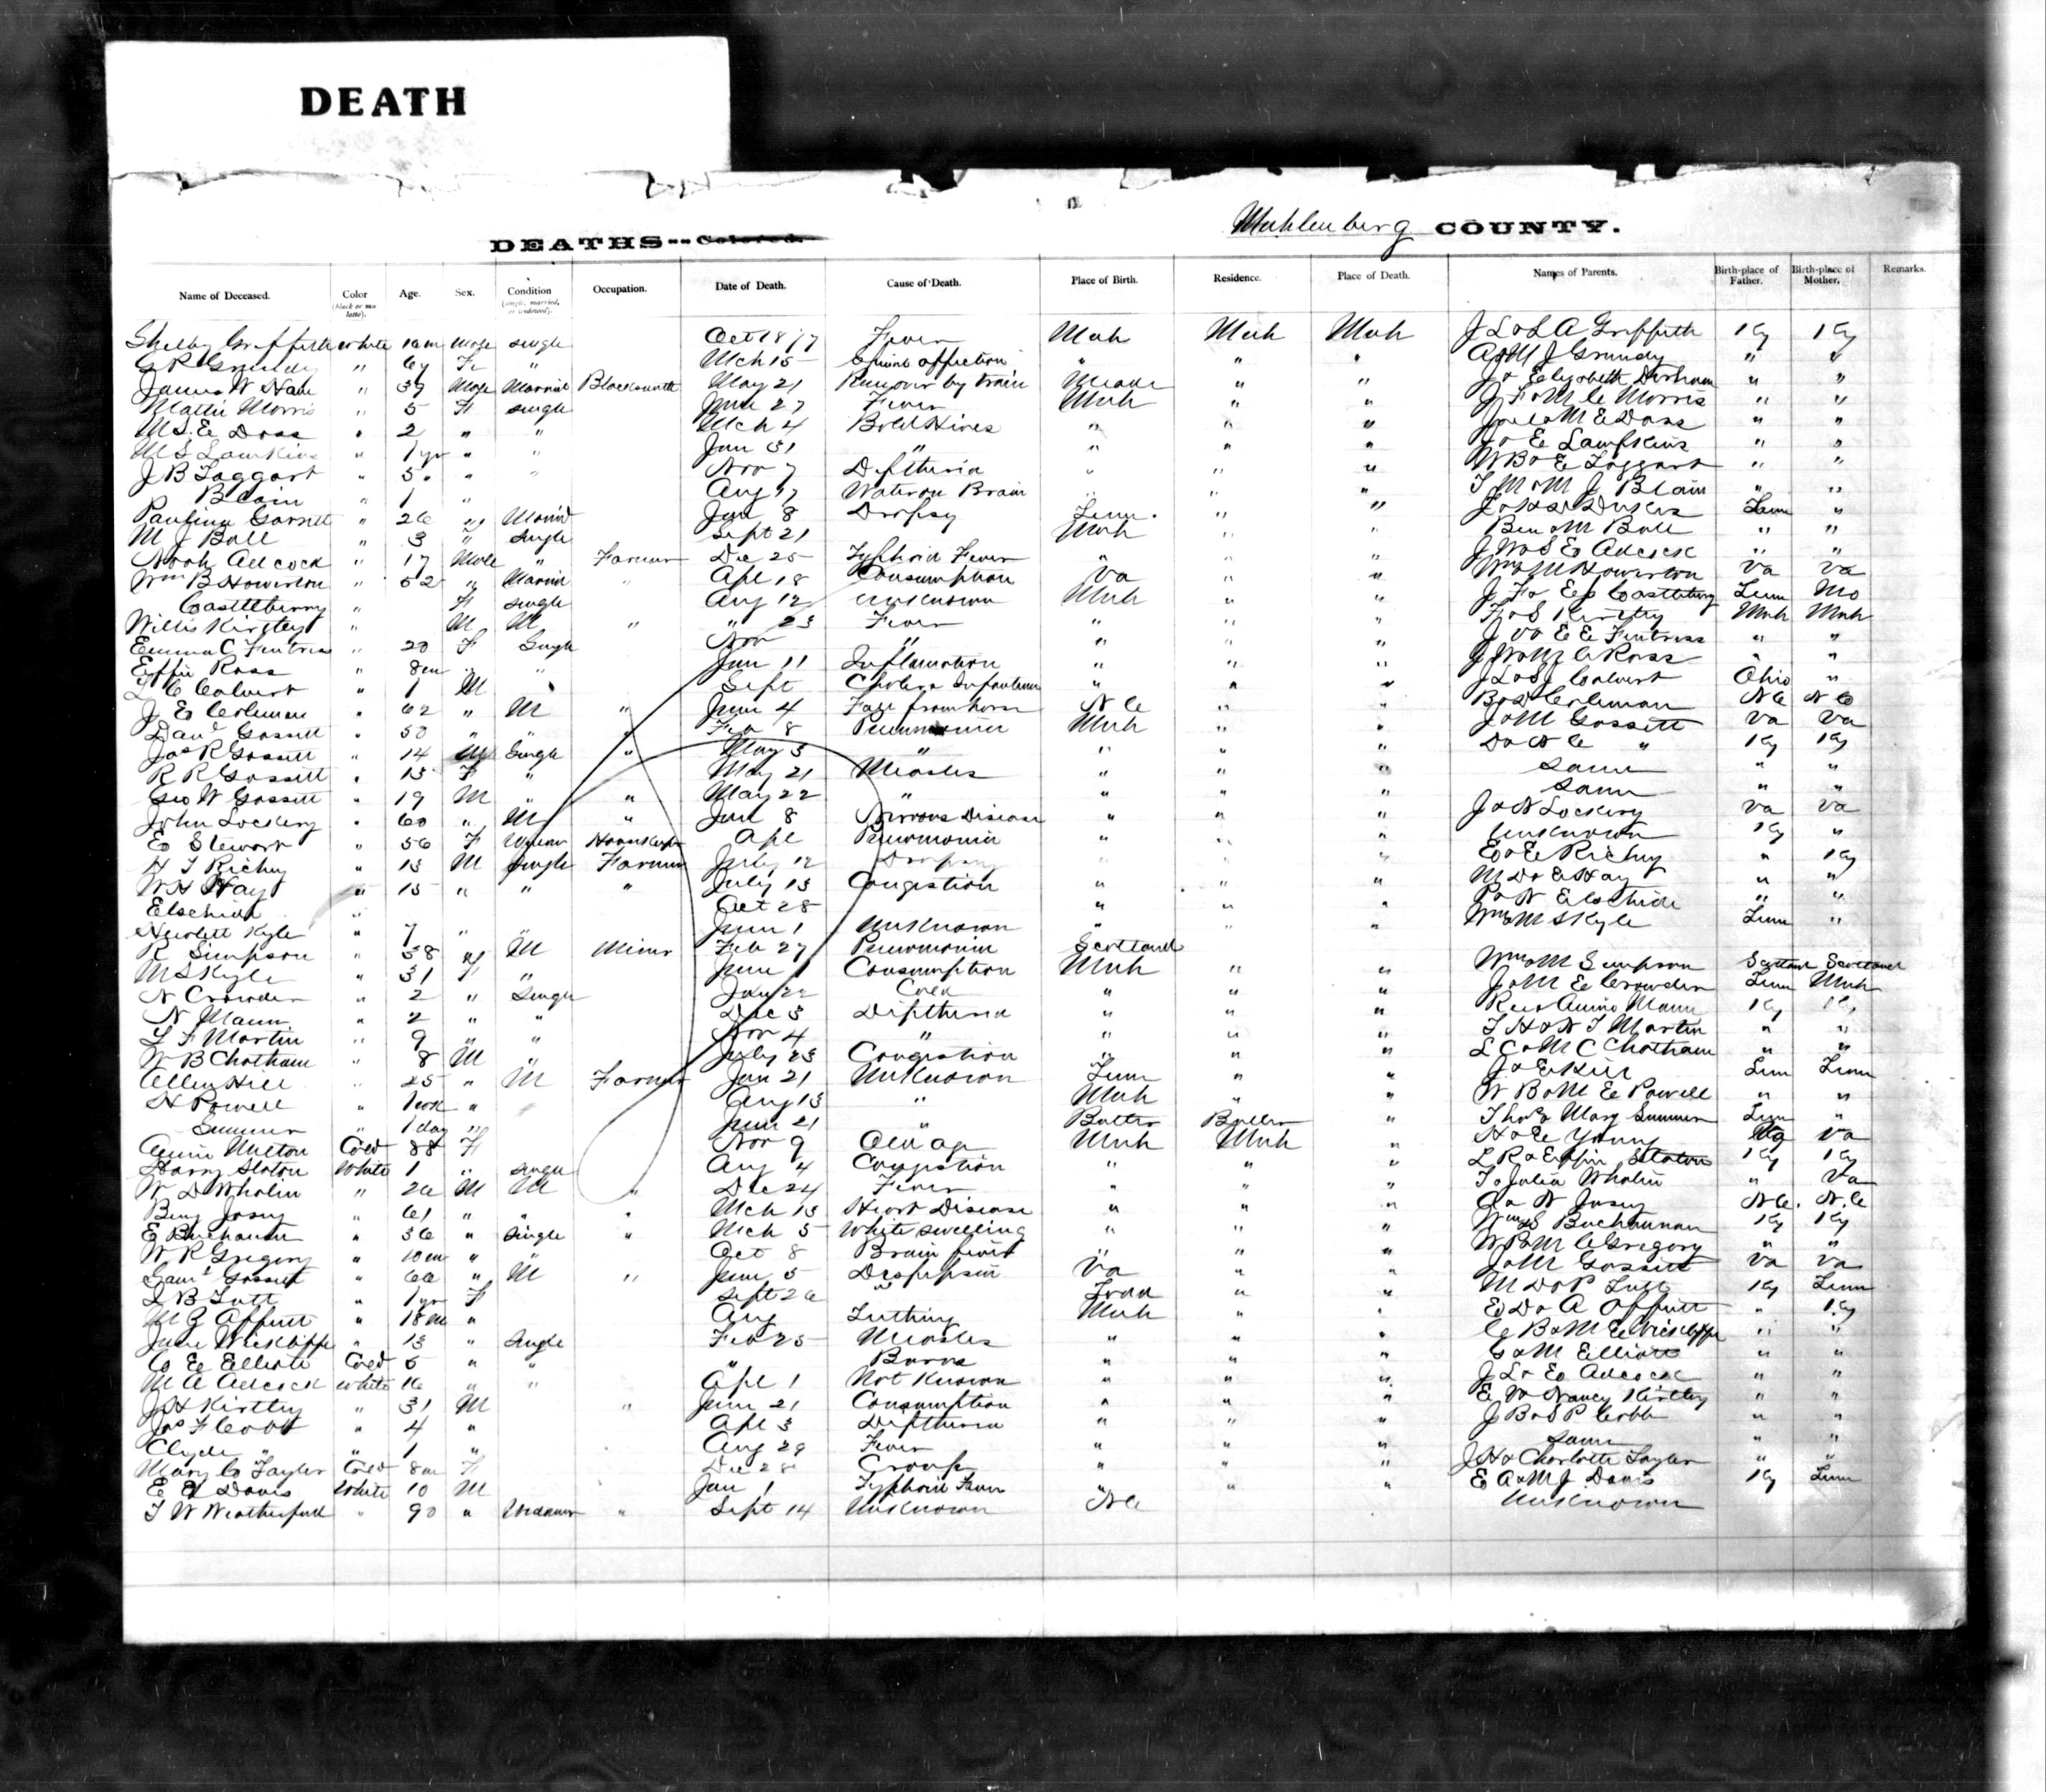 DEATH
Muhlenberg COUNTY.
DEATHS--Colored.
Name of Deceased. Color (black or mulatto). Age. Sex. Condition (single, married, or widowed). Occupation. Date of Death. Cause of Death. Place of Birth. Residence. Place of Death. Names of Parents. Birth-place of Father. Birth-place of Mother. Remarks.
Shelby Griffith White 10m Male Single Oct 18 Fever Muh Muh Muh J L & L A Griffith Ky Ky
G R Grundy " 6y F " Mch 15 Spinal affection " " " A & M J Grundy " "
James W Ham " 39 Male Married Blacksmith May 21 Run over by train Meade " " J & Elizabeth " "
Mattie Morris " 5 F Single June 27 Fever Muh " " J F & M C Morris " "
M S E Doss " 2 " " Mch 4 Bold Hives " " " Joel & M E Doss " "
M S Lampkins " 1 yr " " Jan 31 " " " " J & E Lampkins " "
J B Taggart " 5 " " Nov 7 Diptheria " " " W B & E Taggart " "
Blain " 1 " Aug 17 Water on Brain " " " T M & M J Blain " "
Paulina Garrett " 26 " Married Jan 8 Dropsy Tenn. " " Tenn "
M J Ball " 3 " Single Sept 21 Muh " " Ben & M Ball " "
Noah Adcock " 17 Male " Farmer Dec 25 Typhoid Fever " " " J W & S E Adcock " "
Wm B Howerton " 52 " Married " Apl 18 Consumption Va " " Wm & M Howerton Va Va
Castleberry " F Single Aug 12 Unknown Muh " " J F & E J Castleberry Tenn Mo
Willis Kirtley " M M " " 23 Fever " " " F & S Kirtley Muh Muh
Emma C Fentress " 20 F Single Nov " " " " J V & E E Fentress " "
Effie Ross " 8m " " Jan 11 Inflamation " " " J W & M C Ross " "
L C Calvert " 1 M " Sept Cholera Infantum " " " J L & S J Calvert Ohio "
J E Coleman " 62 " M " June 4 Fall from horse N C " " B & D Coleman N C N C
Danl Gossett " 50 " " " Feb 8 Pneumonia Muh " " J & M Gossett Va Va
Jas R Gossett " 14 M Single " May 3 " " " " D & N C " Ky Ky
R R Gossett " 13 F " May 21 Measles " " " Same " "
Geo W Gossett " 19 M " " May 22 " " " " Same " "
John Lockery " 60 " M " Jan 8 Nervous Disease " " " J & N Lockery Va Va
E Stewart " 56 F Widow Housekeeper Apl Pneumonia " " " Unknown Ky "
H T Richey " 13 M Single Farmer July 12 Dropsy " " " E & E Richey " Ky
W H Hay " 15 " " " July 13 Congestion " " " M D & E Hay " "
Elschide " Oct 28 " " " P & N Elschide " "
Hewlett Kyle " 7 " " June 1 Unknown " " " Wm & M S Kyle Tenn "
R Simpson " 58 M M Miner Feb 27 Pneumonia Scotland Wm & M Simpson Scotland Scotland
M S Kyle " 31 F " June 1 Consumption Muh " " J & M E Crowder Tenn Muh
N Crowder " 2 " Single Jan 22 Cold " " "
N Mann " 2 " " Dec 3 Diptheria " " " Mann Ky Ky
L F Martin " 9 " " Nov 4 " " " " T H & N J Martin " "
W B Chatham " 8 M " July 23 Congestion " " " L C & M C Chatham " "
Allen Hill " 25 " M Farmer Jan 21 Unknown Tenn " " J & E Hill Tenn Tenn
H Powell " 1 wk " Aug 13 " Muh " " W B & M E Powell " "
Summer " 1 day " June 21 " Butler Butler Thos & Mary Summer Tenn "
Annie Melton Cold 88 F Nov 9 Old age Muh Muh " H & E Young Va Va
Harry Slaton White 1 " Single Aug 4 Congestion " " " L R & Effie Slaton Ky Ky
W D Whalin " 26 M M " Dec 24 Fever " " " T & Julia Whalin " Va
Benj Josey " 61 " " " Mch 13 Heart Disease " " " N Josey N C. N. C
E Buchanan " 36 " Single " Mch 5 White swelling " " " Wm & S Buchannan Ky Ky
W R Gregory " 10m " " Oct 8 Brain fever " " " W P & M C Gregory " "
Saml Gossett " 66 " M " June 5 Dispepsia Va " " J & M Gossett Va Va
I B Tutt " 1 yr F Sept 26 " Todd " " M D & P Tutt Ky Tenn
M G Offutt " 18m " Aug Teething Muh " " E D & A Offutt " Ky
June Wickliffe " 13 " Single Feb 25 Measles " " " C B & M E Wickliffe " "
C E Elliott Cold 5 " " " Burns " " " G & M Elliott " "
M A Adcock White 16 " " Apl 1 Not Known " " " J L & E Adcock " "
J H Kirtley " 31 M " June 21 Consumption " " " E W & Nancy Kirtley " "
Jas F Cobb " 4 " Apl 3 Diptheria " " " J B & S P Cobb " "
Clyde " " 1 " Aug 29 Fever " " " Same " "
Mary C Taylor Cold 8m F Dec 28 Croup " " " J H & Charlotte Taylor " "
E E Davis White 10 M Jan 1 Typhoid Fever " " " E A & M J Davis Ky Tenn
T W Weatherford " 90 " Widower " Sept 14 Unknown N C Unknown